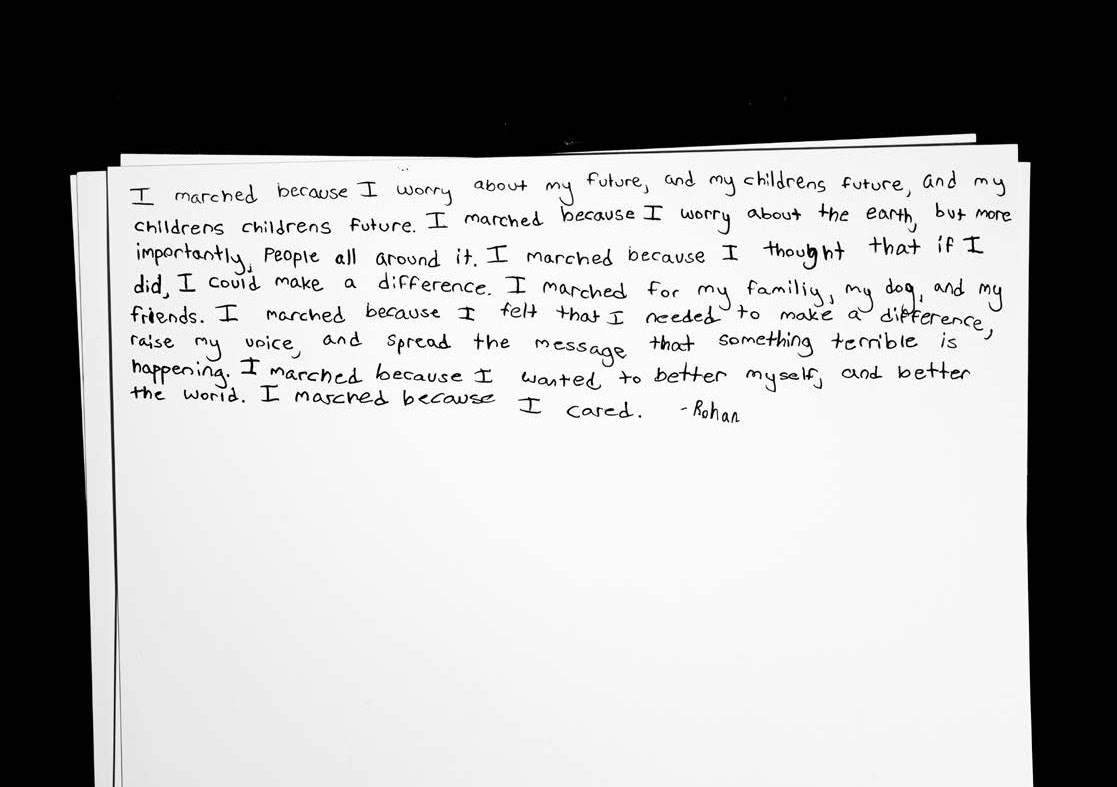 I marched because I worry about my future, and my childrens future, and my
childrens childrens future. I marched because I worry about the earth, but more
importantly, People all around it. I marched because I thought that if I
did, I could make a difference. I marched for my familiy, my dog, and my
friends. I marched because I felt that I needed to make a difference,
raise my voice, and spread the message that something terrible is
happening. I marched because I wanted to better myself, and better
the world. I marched because I cared. -Rohan